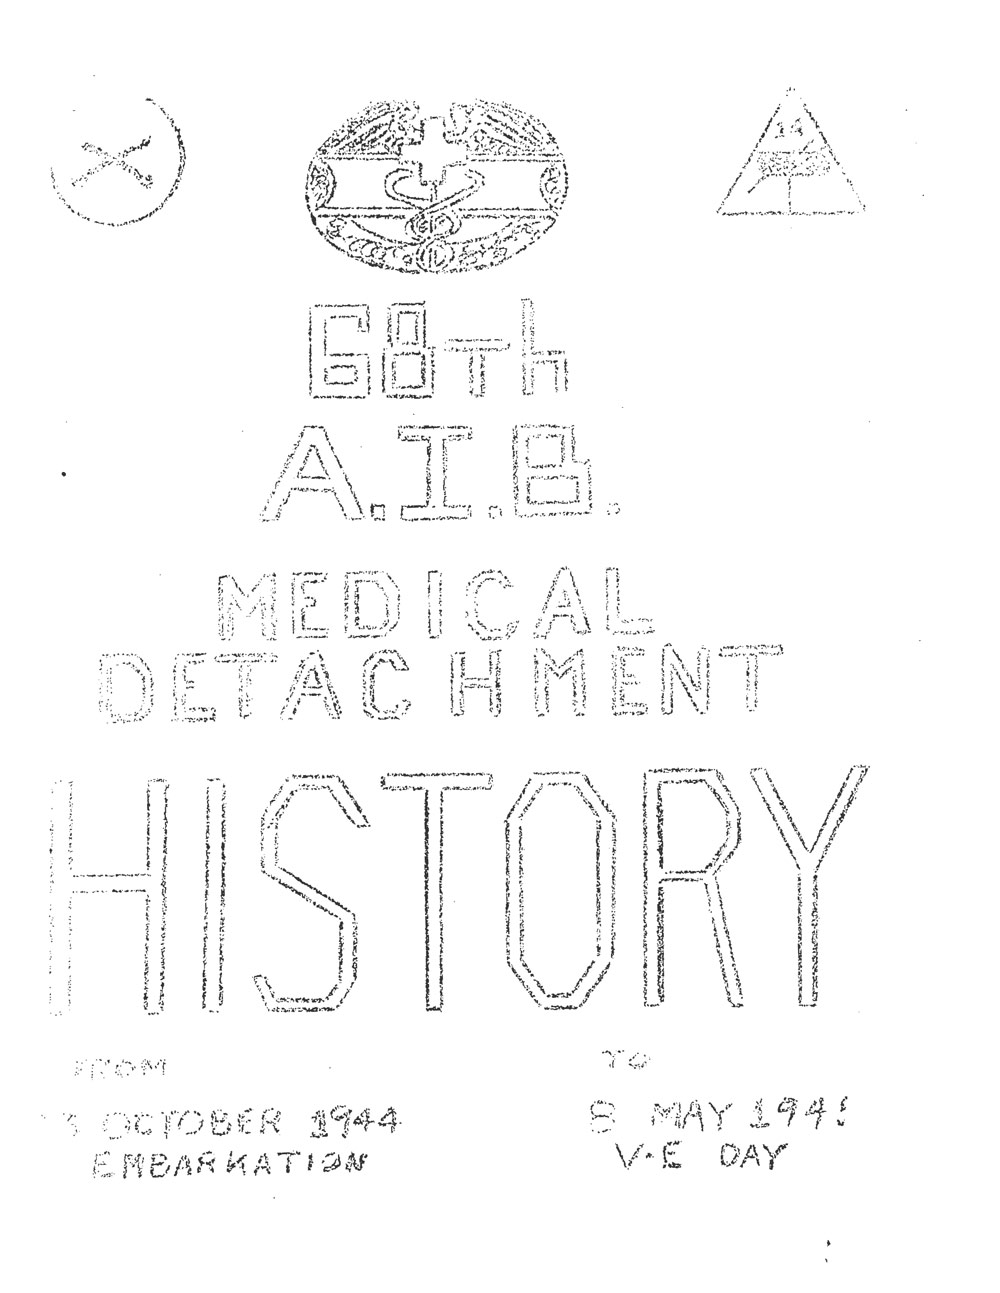 14
68th
A.I.B.
MEDICAL
DETACHMENT
HISTORY
FROM TO
3 OCTOBER 1944 8 MAY 194
EMBARKATION V-E DAY